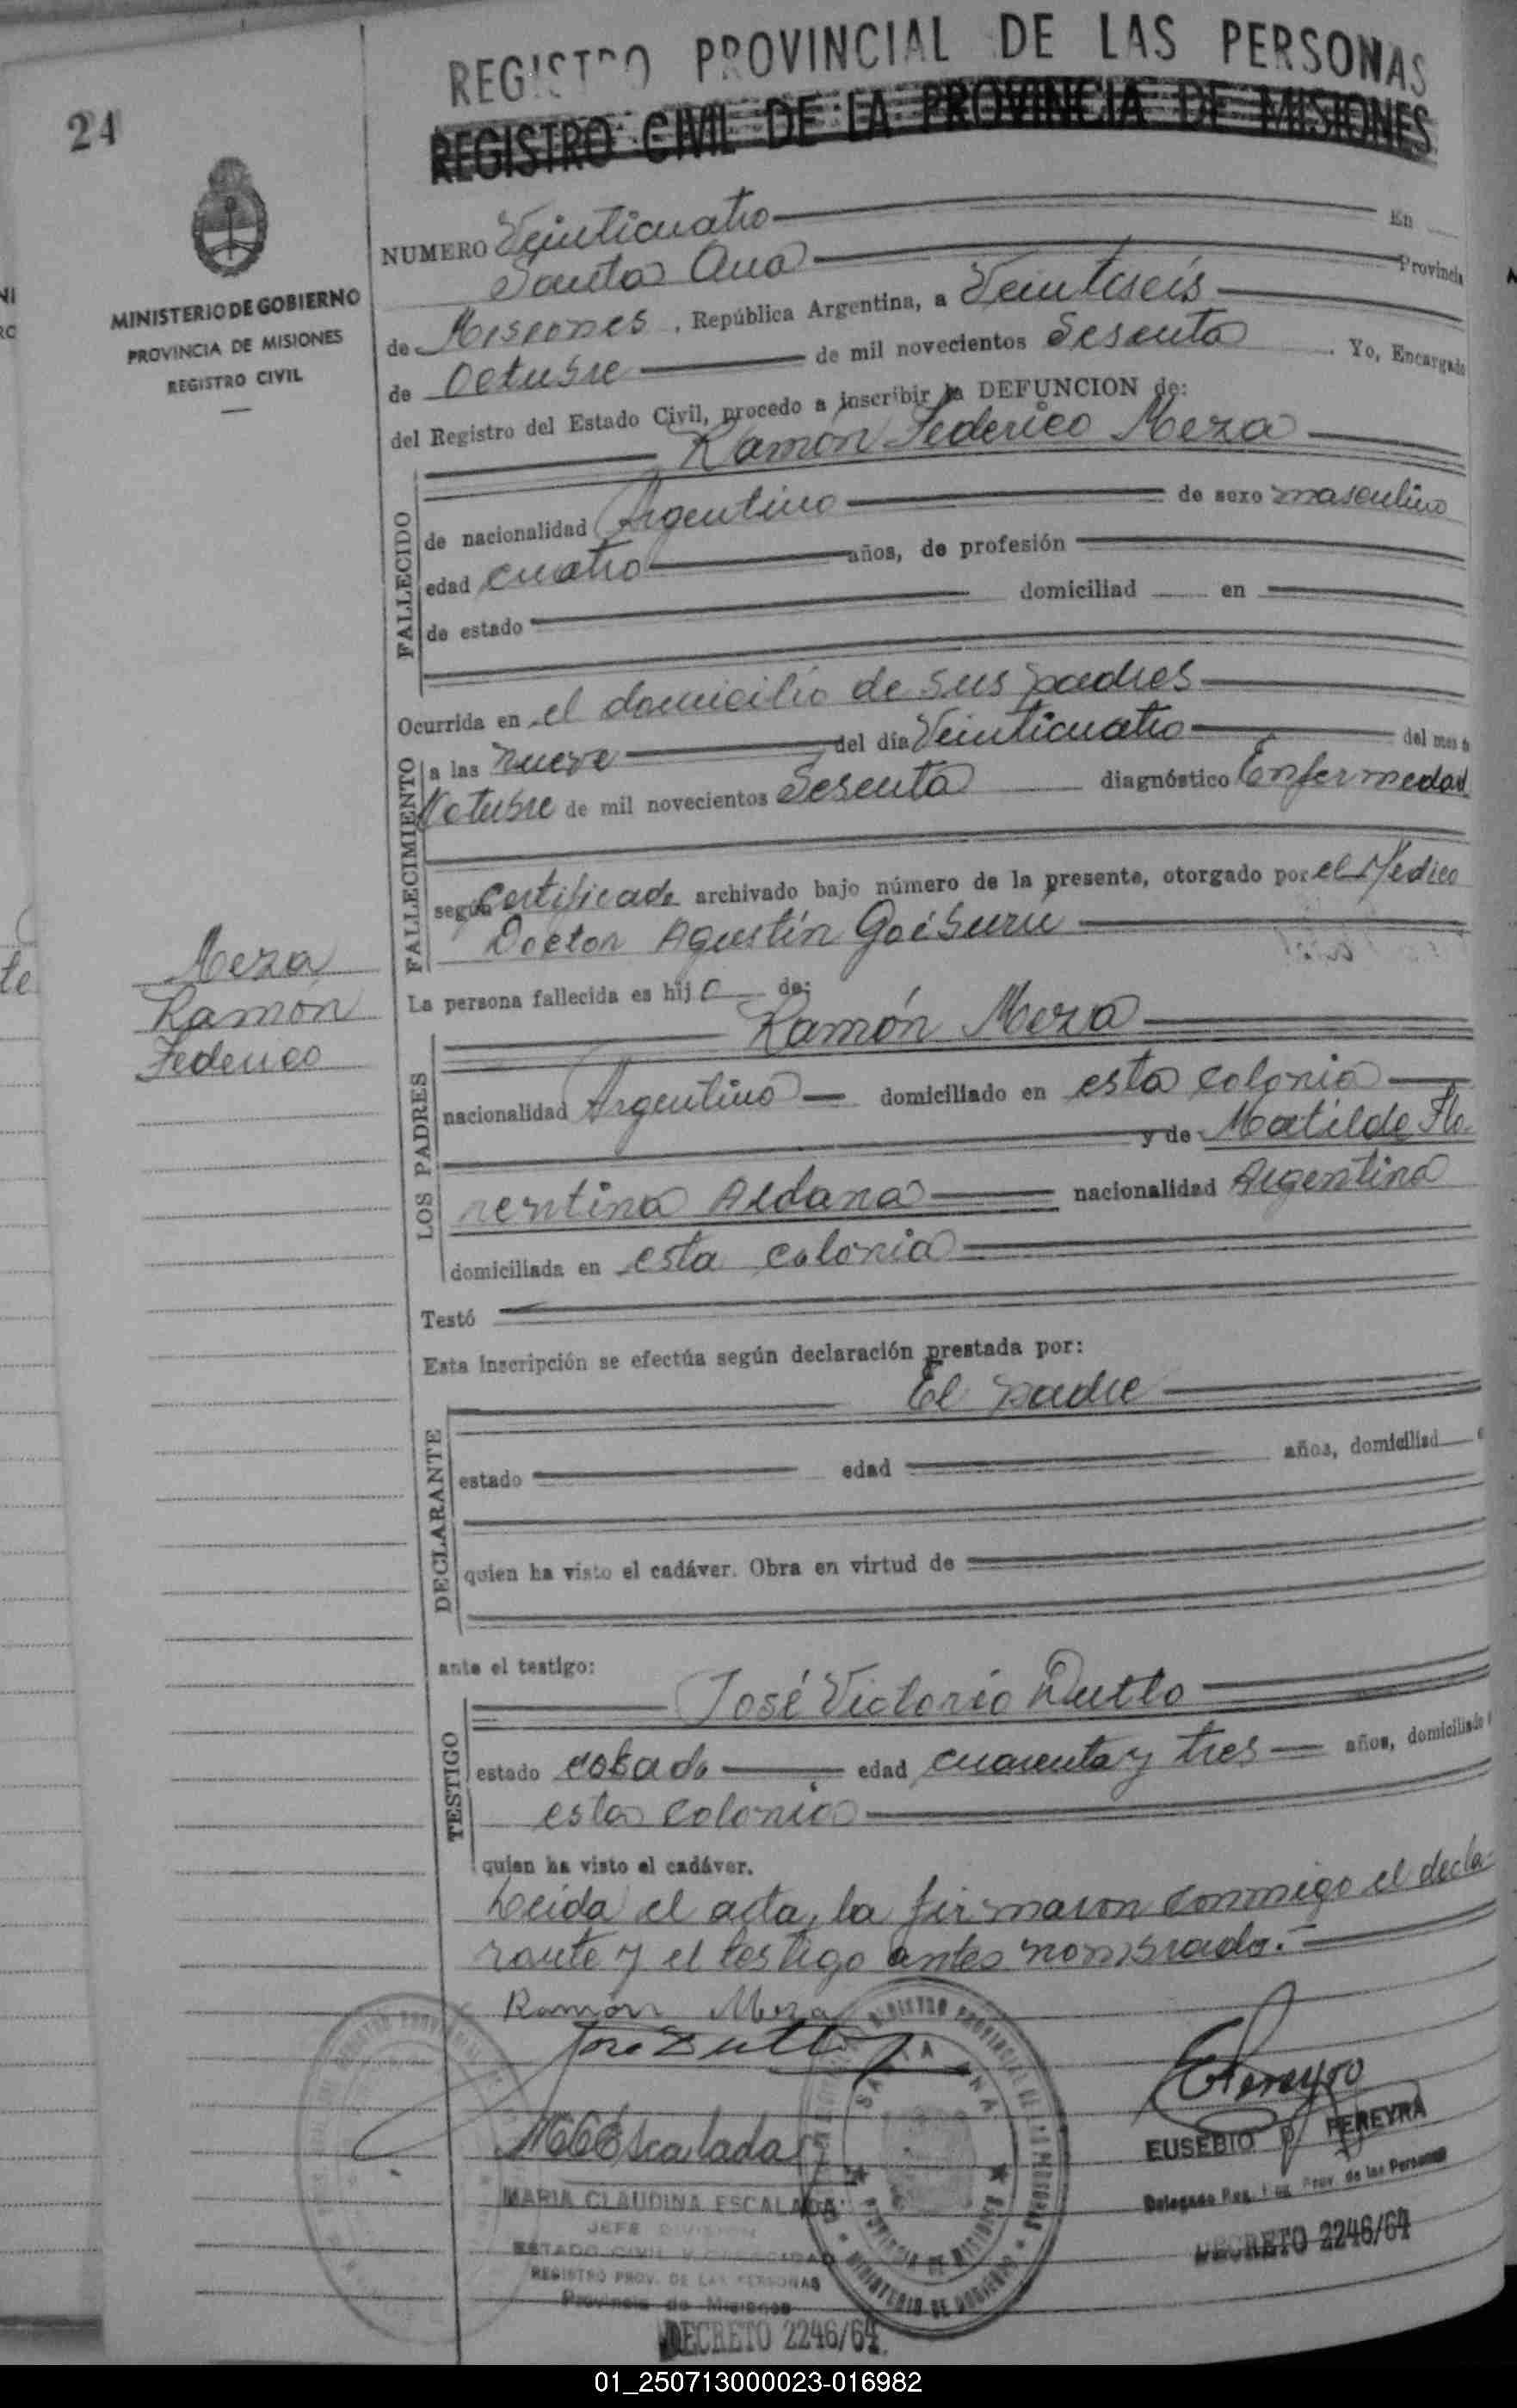 REGISTRO PROVINCIAL DE LAS PERSONAS
REGISTRO CIVIL DE LA PROVINCIA DE MISIONES
24
MINISTERIO DE GOBIERNO
PROVINCIA DE MISIONES
REGISTRO CIVIL
NUMERO Veinticuatro En
Santa Ana Provincia
de Misiones, República Argentina, a Veintiseis
de Octubre de mil novecientos Sesenta. Yo, Encargado
del Registro del Estado Civil, procedo a inscribir la DEFUNCION de:
Ramón Federico Meza
FALLECIDO
de nacionalidad Argentino de sexo masculino
edad cuatro años, de profesión
de estado domiciliad en
Ocurrida en el domicilio de sus padres
FALLECIMIENTO
a las nueve del día Veinticuatro del mes de
Octubre de mil novecientos Sesenta diagnóstico Enfermedad
según Certificado archivado bajo número de la presente, otorgado por el Medico
Doctor Agustín Goiburú
La persona fallecida es hijo de:
Ramón Meza
LOS PADRES
nacionalidad Argentino domiciliado en esta colonia
y de Matilde Flo-
rentina Aldana nacionalidad Argentina
domiciliada en esta colonia
Testó
Esta inscripción se efectúa según declaración prestada por:
El padre
DECLARANTE
estado edad años, domiciliad
quien ha visto el cadáver. Obra en virtud de
ante el testigo:
José Victorio Dutto
TESTIGO
estado casado edad cuarenta y tres años, domiciliado
esta colonia
quien ha visto el cadáver.
Leida el acta, la firmaron conmigo el decla-
rante y el testigo antes nombrado.-
Meza
Ramón
Federico
Ramón Meza
José Dutto
EPereyra
EUSEBIO P. PEREYRA
Delegado Reg. Prov. de las Personas
DECRETO 2246/64
MCEscalada
MARIA CLAUDINA ESCALADA
JEFE DIVISION
ESTADO CIVIL Y CAPACIDAD
REGISTRO PROV. DE LAS PERSONAS
Provincia de Misiones
DECRETO 2246/64
REGISTRO PROVINCIAL DE LAS PERSONAS
SANTA ANA
PROVINCIA DE MISIONES
MINISTERIO DE GOBIERNO
01_250713000023-016982